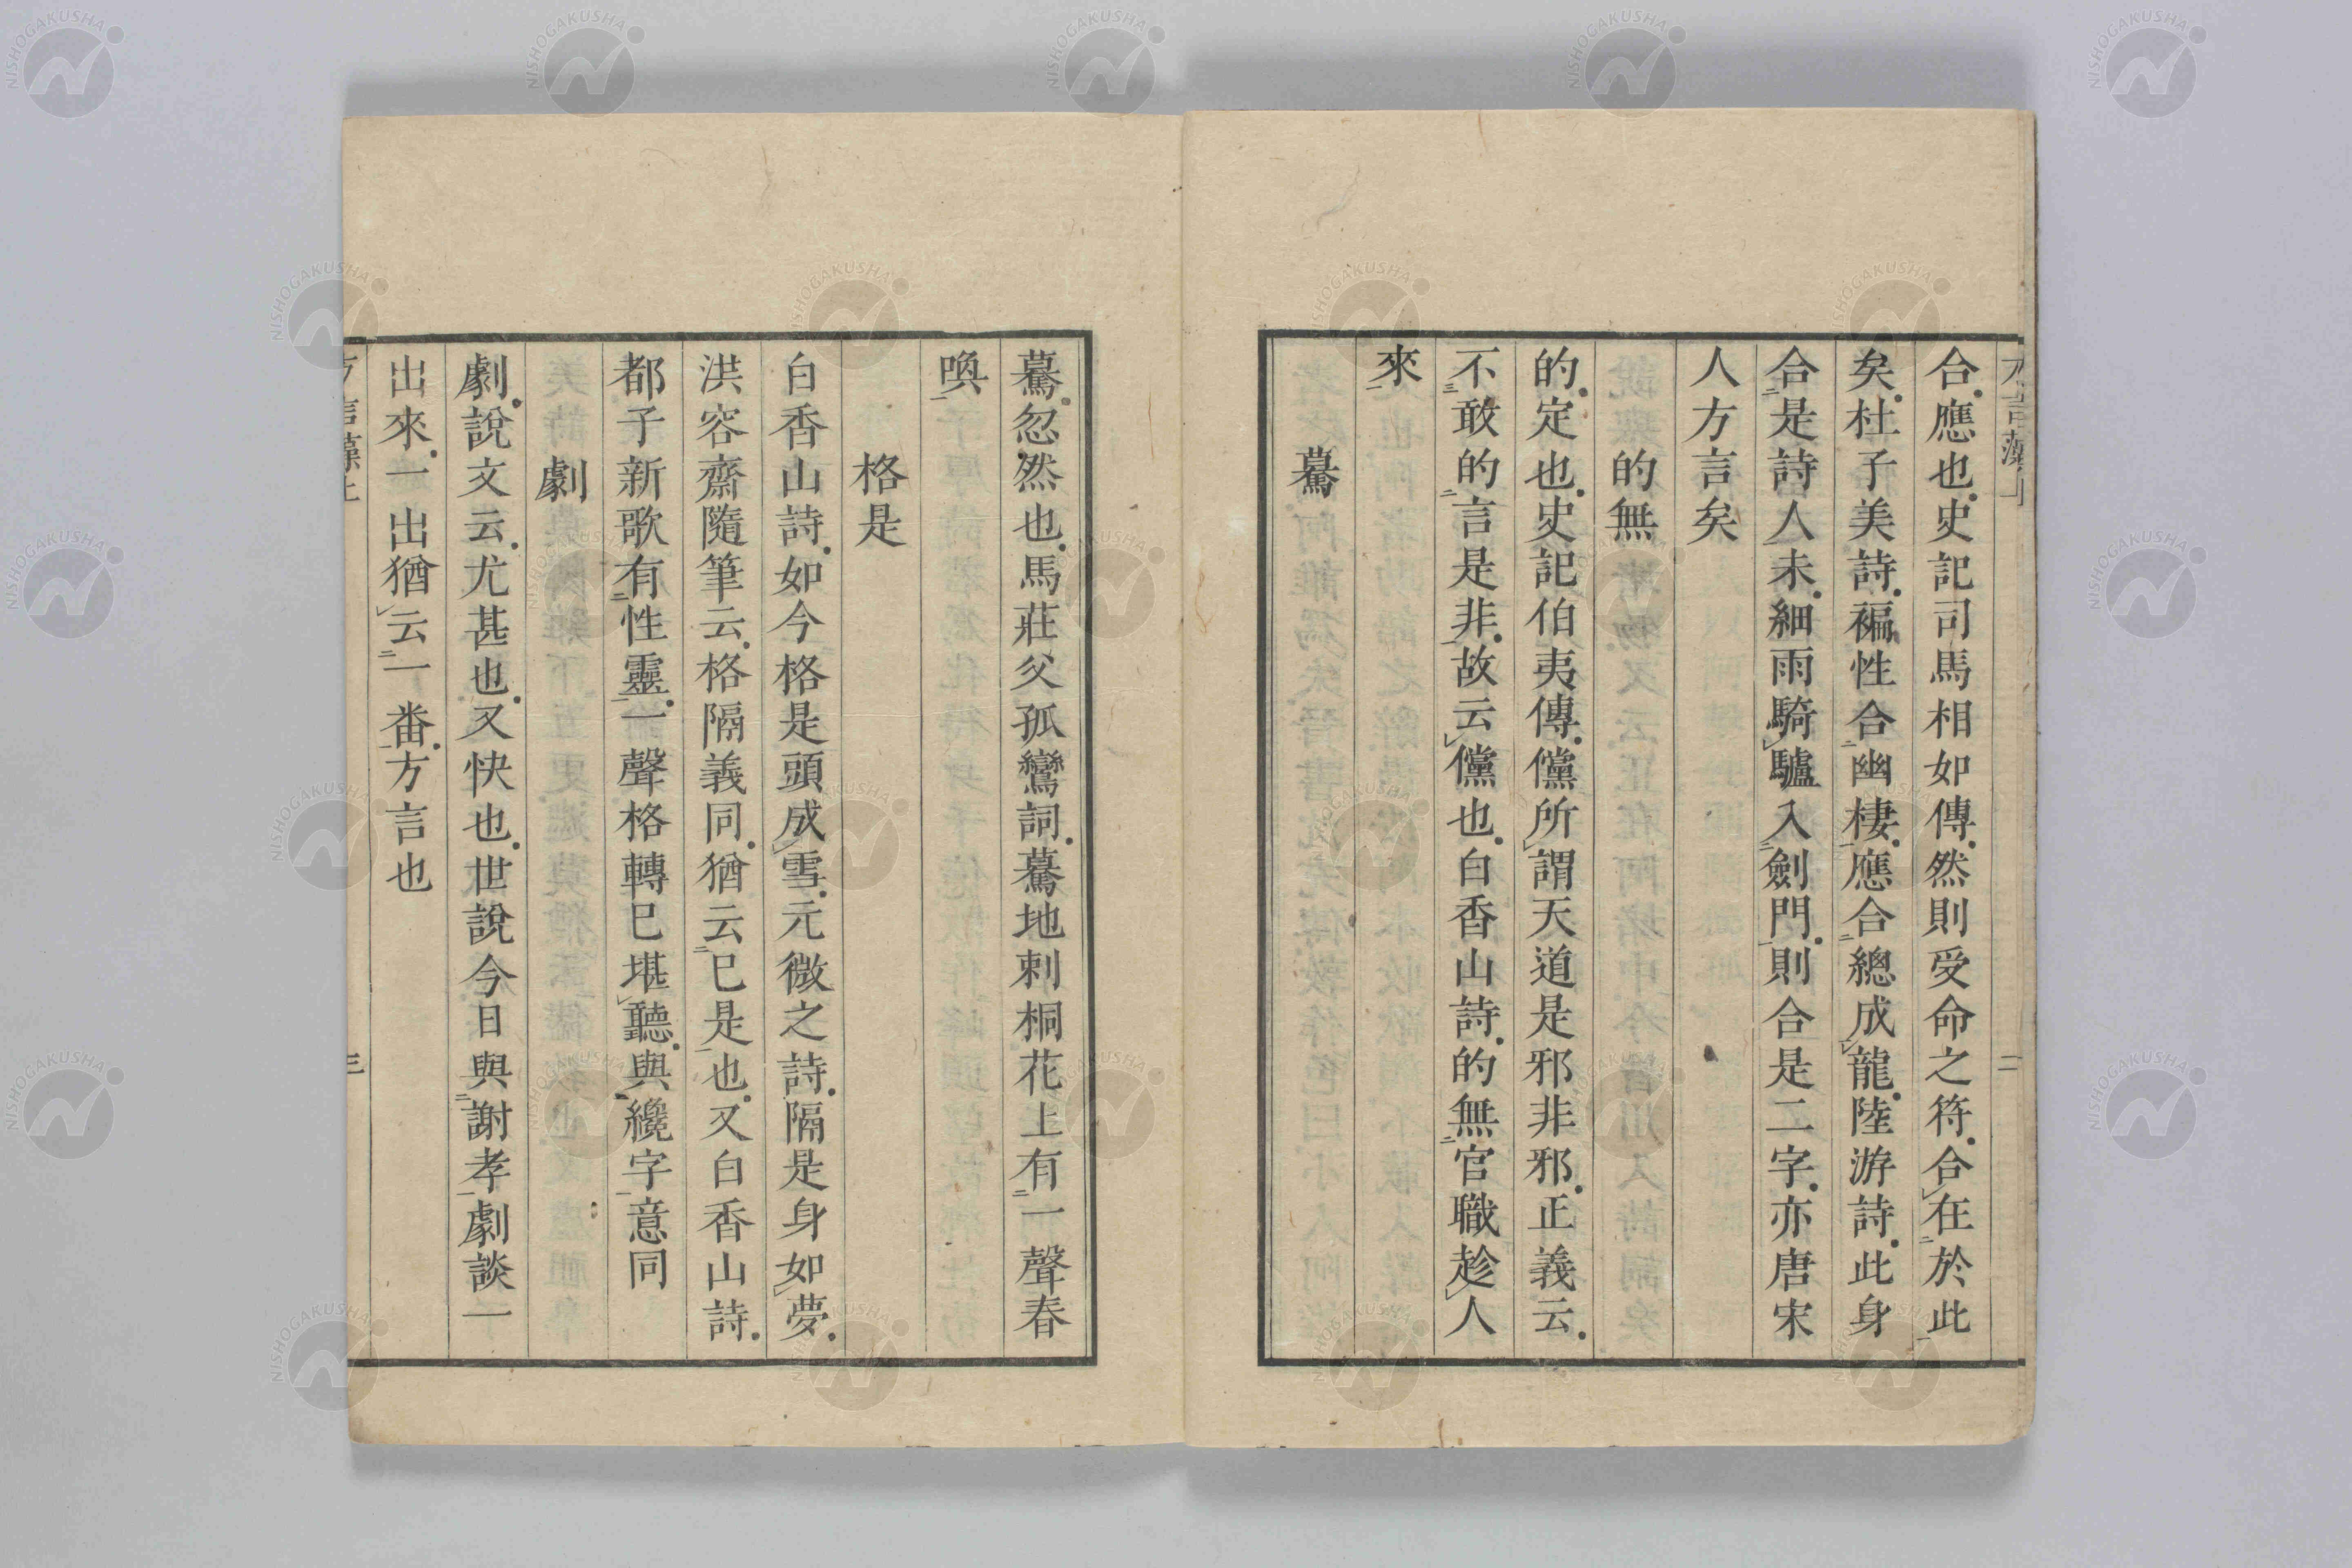 合應也史記司馬相如傳然則受命之符合在於此
矣杜子美詩褊性合幽棲應合總成龍陸游詩此身
合是詩人未細雨騎驢入劍門則合是二字亦唐宋
人方言矣
的無
的定也史記伯夷傳儻所謂天道是邪非邪正義云
不敢的言是非故云儻也白香山詩的無官職趁人
來
驀
驀忽然也馬莊父孤鸞詞驀地刺桐花上有一聲春
喚
格是
白香山詩如今格是頭成雪元微之詩隔是身如夢
洪容齋隨筆云格隔義同猶云已是也又白香山詩
都子新歌有性靈一聲格轉已堪聽與纔字意同
劇
劇說文云尤甚也又快也世說今日與謝孝劇談一
出來一出猶云一番方言也
三
NISHOGAKUSHA